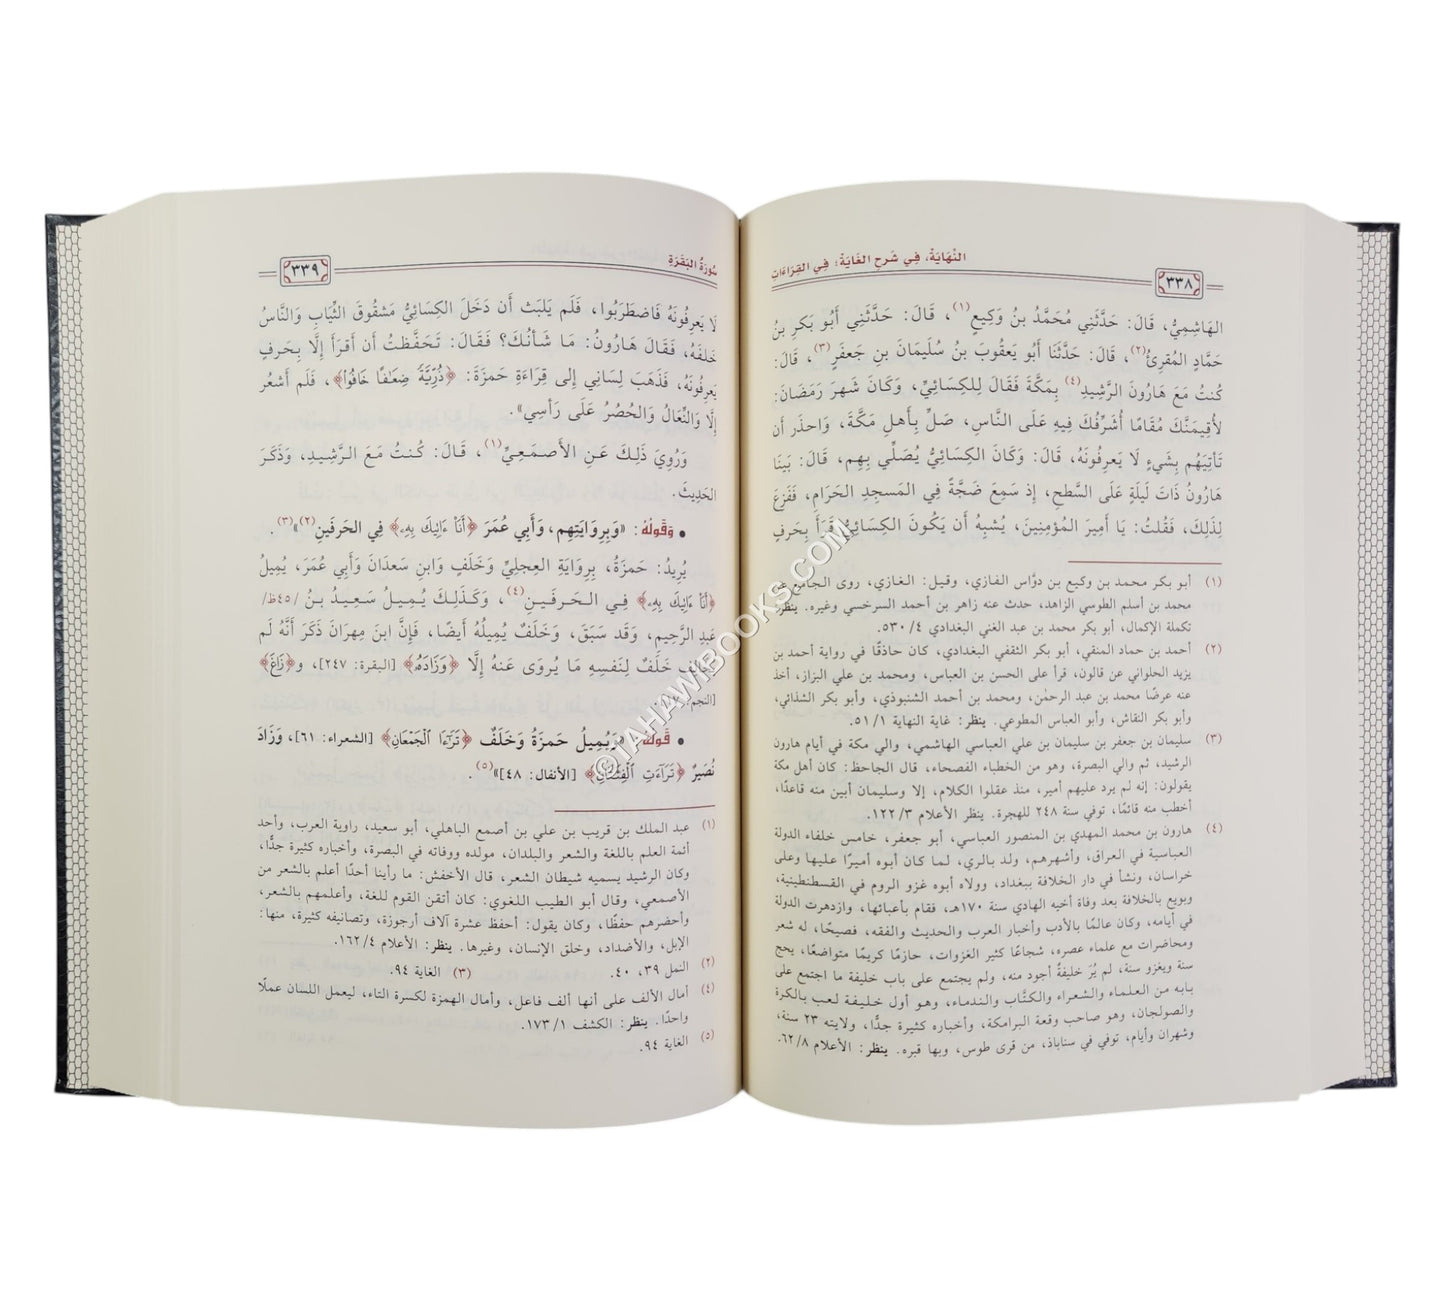 النِّهَايَةُ، فِي شَرحِ الغَايَةِ؛ فِي القِرَاءَاتِ
٣٣٨
الهَاشِمِيُّ، قَالَ: حَدَّثَنِي مُحَمَّدُ بنُ وَكِيعٍ(١)، قَالَ: حَدَّثَنِي أَبُو بَكرِ بنُ
حَمَّادٍ المُقرِئُ(٢)، قَالَ: حَدَّثَنَا أَبُو يَعقُوبَ بنُ سُلَيمَانَ بنِ جَعفَرٍ(٣)، قَالَ:
كُنتُ مَعَ هَارُونَ الرَّشِيدِ(٤) بِمَكَّةَ فَقَالَ لِلكِسَائِيِّ، وَكَانَ شَهرَ رَمَضَانَ:
لأُقِيمَنَّكَ مُقَامًا أُشَرِّفُكَ فِيهِ عَلَى النَّاسِ، صَلِّ بِأَهلِ مَكَّةَ، وَاحذَر أَن
تَأتِيَهُم بِشَيءٍ لَا يَعرِفُونَهُ، قَالَ: وَكَانَ الكِسَائِيُّ يُصَلِّي بِهِم، قَالَ: بَينَا
هَارُونُ ذَاتَ لَيلَةٍ عَلَى السَّطحِ، إِذ سَمِعَ ضَجَّةً فِي المَسجِدِ الحَرَامِ، فَفَزِعَ
لِذَلِكَ، فَقُلتُ: يَا أَمِيرَ المُؤمِنِينَ، يُشبِهُ أَن يَكُونَ الكِسَائِيُّ قَرَأَ بِحَرفٍ
(١) أبو بكر محمد بن وكيع بن دوَّاس الفازي، وقيل: الغازي، روى الجامع عن
محمد بن أسلم الطوسي الزاهد، حدث عنه زاهر بن أحمد السرخسي وغيره. ينظر:
تكملة الإكمال، أبو بكر محمد بن عبد الغني البغدادي ٤/ ٥٣٠.
(٢) أحمد بن حماد المنقي، أبو بكر الثقفي البغدادي، كان حاذقًا في رواية أحمد بن
يزيد الحلواني عن قالون، قرأ على الحسن بن العباس، ومحمد بن علي البزاز، أخذ
عنه عرضًا محمد بن عبد الرحمٰن، ومحمد بن أحمد الشنبوذي، وأبو بكر الشذائي،
وأبو بكر النقاش، وأبو العباس المطوعي. ينظر: غاية النهاية ١/ ٥١.
(٣) سليمان بن جعفر بن سليمان بن علي العباسي الهاشمي، والي مكة في أيام هارون
الرشيد، ثم والي البصرة، وهو من الخطباء الفصحاء، قال الجاحظ: كان أهل مكة
يقولون: إنه لم يرد عليهم أمير، منذ عقلوا الكلام، إلا وسليمان أبين منه قاعدًا،
أخطب منه قائمًا، توفي سنة ٢٤٨ للهجرة. ينظر الأعلام ٣/ ١٢٢.
(٤) هارون بن محمد المهدي بن المنصور العباسي، أبو جعفر، خامس خلفاء الدولة
العباسية في العراق، وأشهرهم، ولد بالري، لما كان أبوه أميرًا عليها وعلى
خراسان، ونشأ في دار الخلافة ببغداد، وولاه أبوه غزو الروم في القسطنطينية،
وبويع بالخلافة بعد وفاة أخيه الهادي سنة ١٧٠هـ، فقام بأعبائها، وازدهرت الدولة
في أيامه، وكان عالمًا بالأدب وأخبار العرب والحديث والفقه، فصيحًا، له شعر
ومحاضرات مع علماء عصره، شجاعًا كثير الغزوات، حازمًا كريمًا متواضعًا، يحج
سنة ويغزو سنة، لم يُرَ خليفةٌ أجود منه، ولم يجتمع على باب خليفة ما اجتمع على
بابه من العلماء والشعراء والكتَّاب والندماء، وهو أول خليفة لعب بالكرة
والصولجان، وهو صاحب وقعة البرامكة، وأخباره كثيرة جدًّا، ولايته ٢٣ سنة،
وشهران وأيام، توفي في سناباذ، من قرى طوس، وبها قبره. ينظر: الأعلام ٨/ ٦٢.
سُورَةُ البَقَرَةِ
٣٣٩
لَا يَعرِفُونَهُ فَاضطَرَبُوا، فَلَم يَلبَث أَن دَخَلَ الكِسَائِيُّ مَشقُوقَ الثِّيَابِ وَالنَّاسُ
خَلفَهُ، فَقَالَ هَارُونُ: مَا شَأنُكَ؟ فَقَالَ: تَحَفَّظتُ أَن أَقرَأَ إِلَّا بِحَرفٍ
يَعرِفُونَهُ، فَذَهَبَ لِسَانِي إِلَى قِرَاءَةِ حَمزَةَ: ﴿ذُرِّيَّةً ضِعَٰفًا خَافُواْ﴾، فَلَم أَشعُر
إِلَّا وَالنِّعَالُ وَالحُصُرُ عَلَى رَأسِي».
وَرُوِيَ ذَلِكَ عَنِ الأَصمَعِيِّ(١)، قَالَ: كُنتُ مَعَ الرَّشِيدِ، وَذَكَرَ
الحَدِيثَ.
• وَقَولُهُ: «وَبِرِوَايَتِهِم، وَأَبِي عُمَرَ ﴿أَنَا۠ ءَاتِيكَ بِهِۦ﴾ فِي الحَرفَينِ(٢)»(٣).
يُرِيدُ: حَمزَةُ، بِرِوَايَةِ العِجلِيِّ وَخَلَفٍ وَابنِ سَعدَانَ وَأَبِي عُمَرَ، يُمِيلُ
﴿أَنَا۠ ءَاتِيكَ بِهِۦ﴾ فِي الحَرفَينِ(٤)، وَكَذَلِكَ يُمِيلُ سَعِيدُ بنُ /٤٥ظ/
عَبدِ الرَّحِيمِ، وَقَد سَبَقَ، وَخَلَفٌ يُمِيلُهُ أَيضًا، فَإِنَّ ابنَ مِهرَانَ ذَكَرَ أَنَّهُ لَم
يُخَالِف خَلَفٌ لِنَفسِهِ مَا يُروَى عَنهُ إِلَّا ﴿وَزَادَهُۥ﴾ [البقرة: ٢٤٧]، وَ﴿زَاغَ﴾
[النجم: ١٧].
• قَولُهُ: «وَيُمِيلُ حَمزَةُ وَخَلَفٌ ﴿تَرَٰٓءَا ٱلْجَمْعَانِ﴾ [الشعراء: ٦١]، وَزَادَ
نُصَيرٌ ﴿تَرَآءَتِ ٱلْفِئَتَانِ﴾ [الأنفال: ٤٨]»(٥).
(١) عبد الملك بن قريب بن علي بن أصمع الباهلي، أبو سعيد، راوية العرب، وأحد
أئمة العلم باللغة والشعر والبلدان، مولده ووفاته في البصرة، وأخباره كثيرة جدًّا،
وكان الرشيد يسميه شيطان الشعر، قال الأخفش: ما رأينا أحدًا أعلم بالشعر من
الأصمعي، وقال أبو الطيب اللغوي: كان أتقن القوم للغة، وأعلمهم بالشعر،
وأحضرهم حفظًا، وكان يقول: أحفظ عشرة آلاف أرجوزة، وتصانيفه كثيرة، منها:
الإبل، والأضداد، وخلق الإنسان، وغيرها. ينظر: الأعلام ٤/ ١٦٢.
(٢) النمل ٣٩، ٤٠. (٣) الغاية ٩٤.
(٤) أمال الألف على أنها ألف فاعل، وأمال الهمزة لكسرة التاء، ليعمل اللسان عملًا
واحدًا. ينظر: الكشف ١/ ١٧٣.
(٥) الغاية ٩٤.
©TAHAWIBOOKS.COM